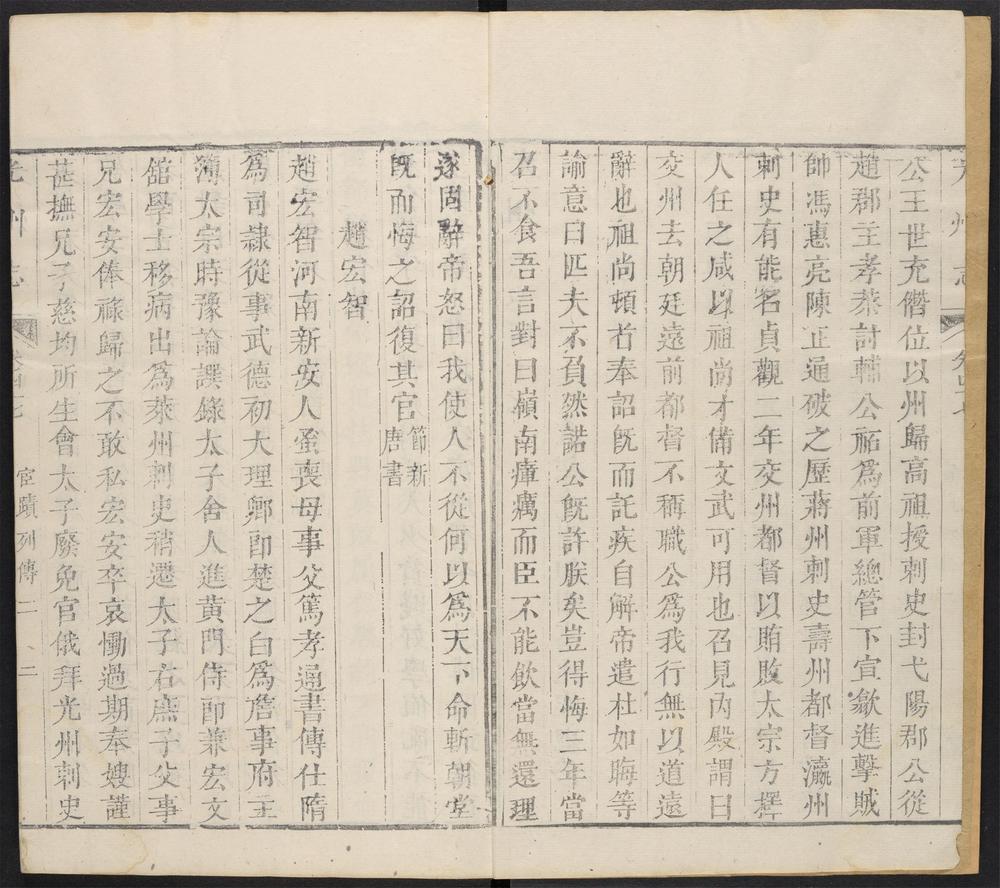 光州志
公王世充僭位以州歸高祖授刺史封弋陽郡公從
趙郡王孝恭討輔公祏爲前軍總管下宣歙進擊賊
帥馮惠亮陳正通破之歷蔣州刺史壽州都督瀛州
刺史有能名貞觀二年交州都督以賄敗太宗方擇
人任之咸以祖尚才備文武可用也召見內殿謂曰
交州去朝廷遠前都督不稱職公爲我行無以道遠
辭也祖尚頓首奉詔既而託疾自解帝遣杜如晦等
諭意曰匹夫不負然諾公既許朕矣豈得悔三年當
召不食吾言對曰嶺南瘴癘而臣不能飲當無還理
遂固辭帝怒曰我使人不從何以爲天下命斬朝堂
既而悔之詔復其官節新唐書
趙宏智
趙宏智河南新安人蚤喪母事父篤孝通書傳仕隋
為司隸從事武德初大理卿郎楚之白爲詹事府主
簿太宗時豫論譔錄太子舍人進黃門侍郎兼宏文
舘學士移病出爲萊州刺史稍遷太子右庶子父事
兄宏安俸祿歸之不敢私宏安卒哀慟過期奉嫂謹
甚撫兄子慈均所生會太子廢免官俄拜光州刺史
光州志
宦蹟列傳二
二